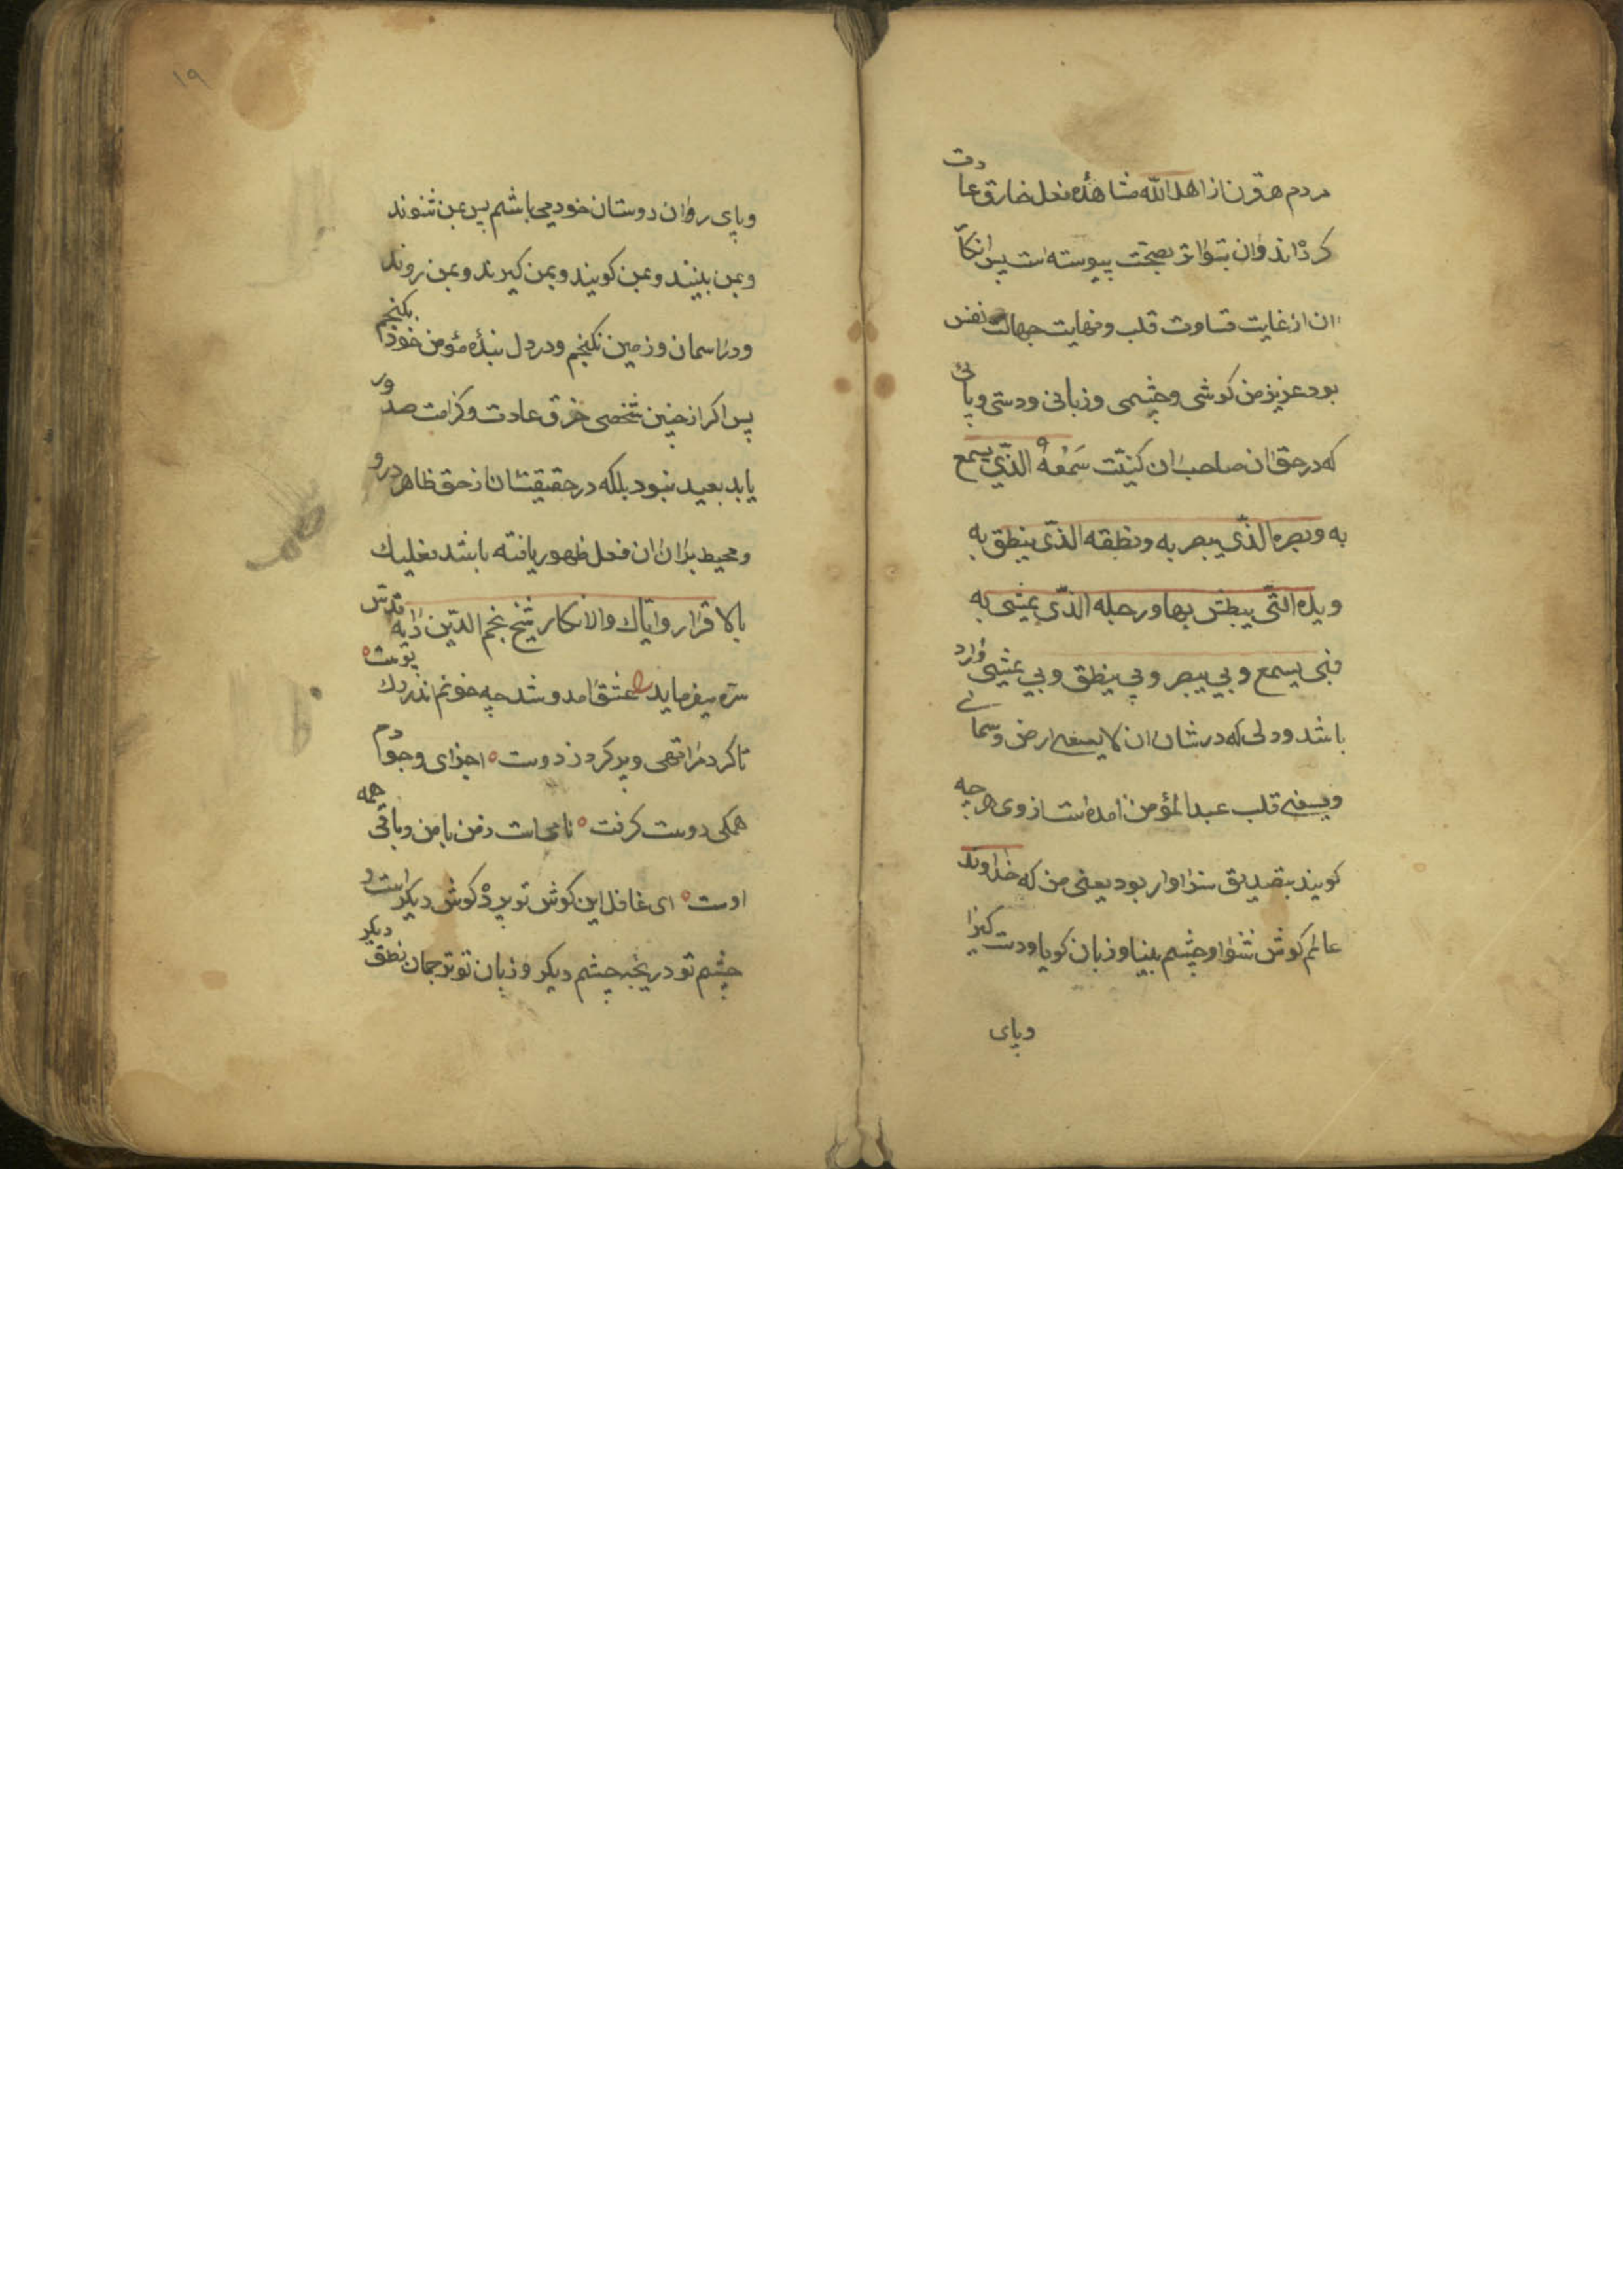 مردم هر قرن از اهل الله مشاهده فعل خارق عادت
کرده‌اند وان بتواتر بصحت پیوسته است پس انکار
ان از غایت قساوت قلب و نهایت جهالت نفس
بود عزیز من کوشی و چشمی و زبانی و دستی و پائی
که در حق ان صاحب ان کنیت سَمْعَهُ الذّی یسمع
به وبصره الذّی یبصر به ونطقه الذّی ینطق به
ویده التّی یبطش بها ورجله الذّی یمشی به
فبی یسمع و بی یبصر و بی ینطق و بی یمشی وارد
باشد ودلی که در شان ان لا یسعنی ارض وسمائی
ویسعنی قلب عبد المؤمن امده است از وی هرچه
کویند بتصدیق سزاوار بود یعنی من که خداوند
عالم کوش شنوا وچشم بینا وزبان کویا ودست کیرا
وپای
۱۹
وپای روان دوستان خود می باشم پس بمن شنوند
وبمن بینند وبمن کویند وبمن کیرند وبمن روند
ودر اسمان وزمین نکنجم ودر دل بنده مؤمن خود بکنجم
پس اکر از چنین شخصی خرق عادت وکرامت صدور
یابد بعید نبود بلکه در حقیقت ان از حق ظاهر درو
ومحیط بران ان فعل ظهور یافته باشد فعلیك
بالاقرار وایّاك والانکار شیخ نجم الدّین دایه قدّس
سرّه میفرماید عشق امد وشد چه خونم اندر رك پوست
تا کرد مرا تهی و پر کرد ز دوست اجزای وجودم
همکی دوست کرفت نامی است ز من با من وباقی همه
اوست ای غافل این کوش تو پرده کوش دیکر است و
چشم تو دریچه چشم دیکر وزبان تو ترجمان نطق دیکر